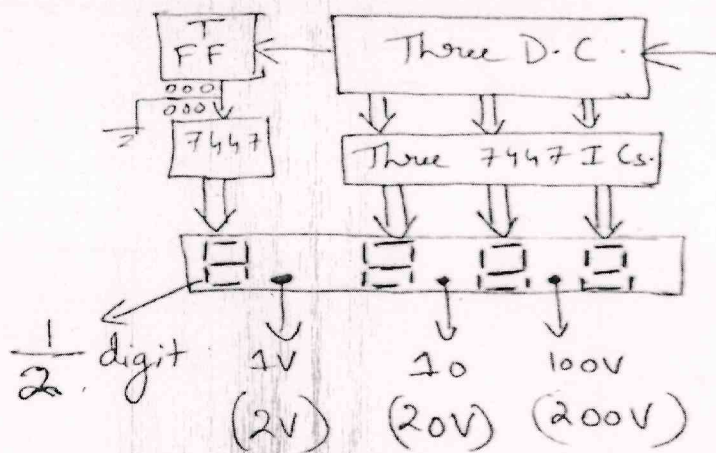 T
FF
Three D.C.
000
000
7447
Three 7447 ICs.
1/2 digit
1V
10
100V
(2V)
(20V)
(200V)